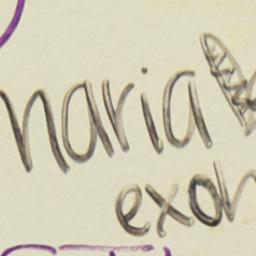 naria
exon